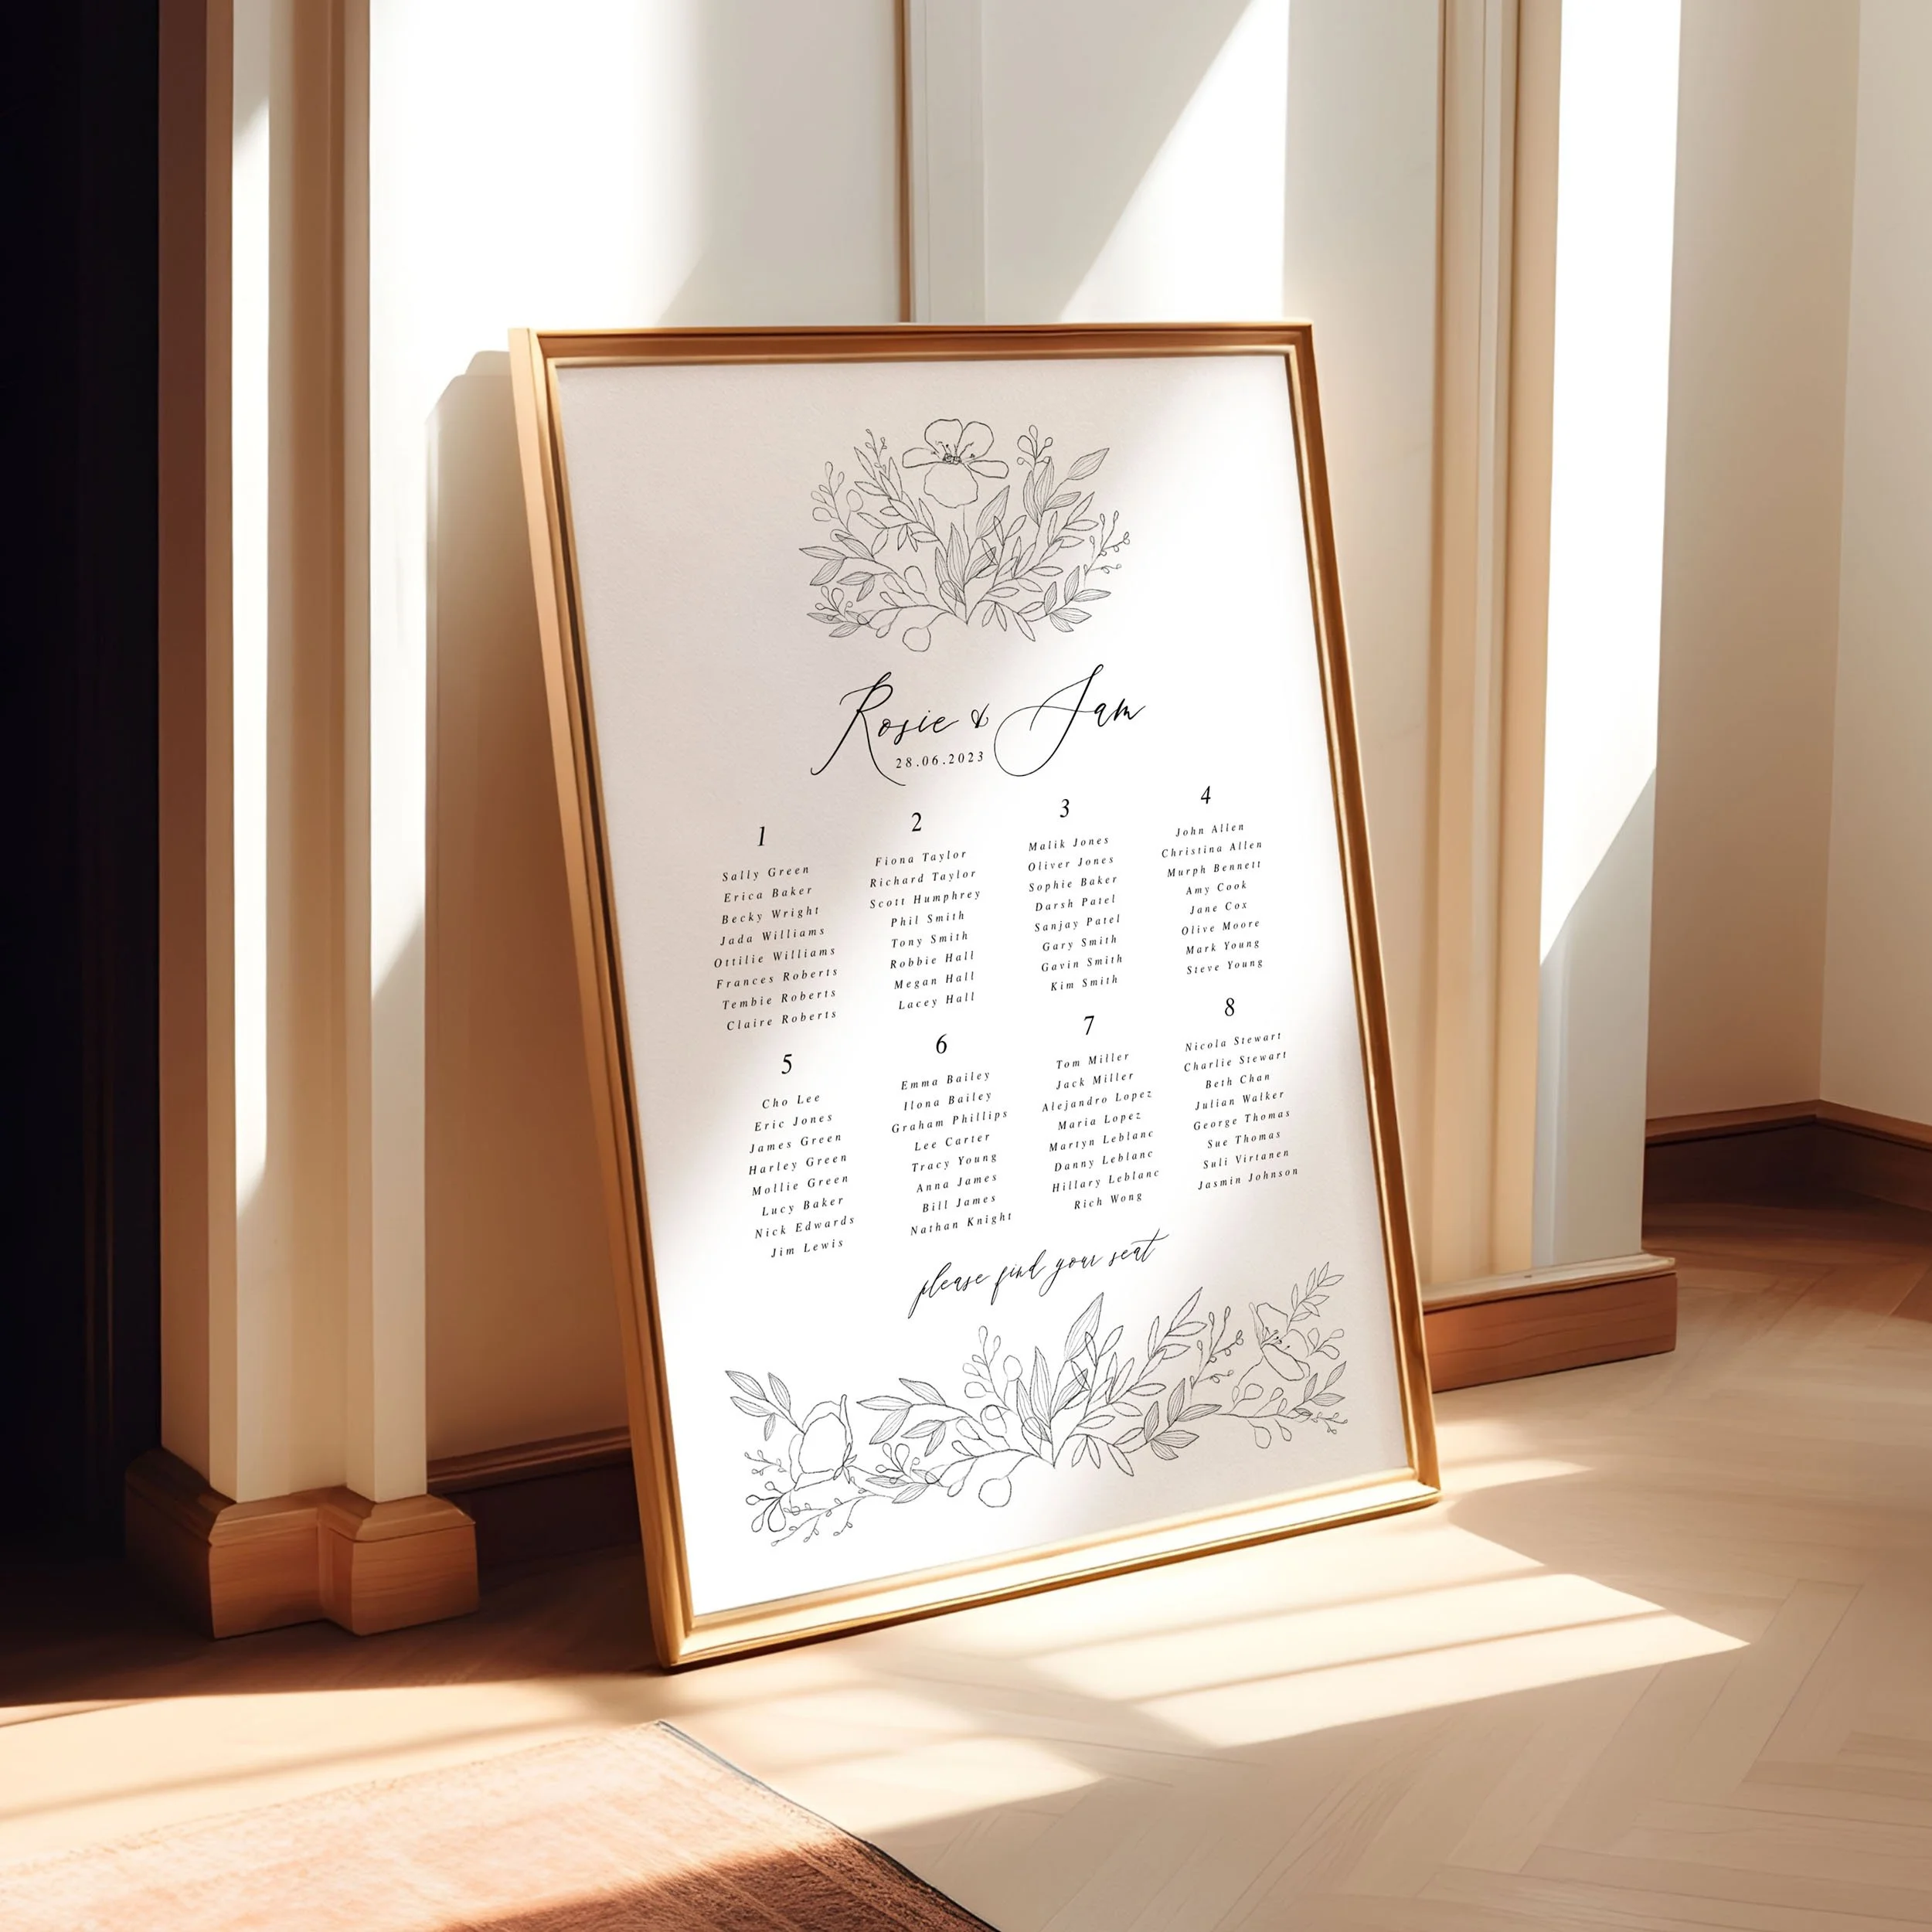 Rosie & Sam
28.06.2023
1
Sally Green
Erica Baker
Becky Wright
Jada Williams
Ottilie Williams
Frances Roberts
Tembie Roberts
Claire Roberts
2
Fiona Taylor
Richard Taylor
Scott Humphrey
Phil Smith
Tony Smith
Robbie Hall
Megan Hall
Lacey Hall
3
Malik Jones
Oliver Jones
Sophie Baker
Darsh Patel
Sanjay Patel
Gary Smith
Gavin Smith
Kim Smith
4
John Allen
Christina Allen
Murph Bennett
Amy Cook
Jane Cox
Olive Moore
Mark Young
Steve Young
5
Cho Lee
Eric Jones
James Green
Harley Green
Mollie Green
Lucy Baker
Nick Edwards
Jim Lewis
6
Emma Bailey
Ilona Bailey
Graham Phillips
Lee Carter
Tracy Young
Anna James
Bill James
Nathan Knight
7
Tom Miller
Jack Miller
Alejandro Lopez
Maria Lopez
Martyn Leblanc
Danny Leblanc
Hillary Leblanc
Rich Wong
8
Nicola Stewart
Charlie Stewart
Beth Chan
Julian Walker
George Thomas
Sue Thomas
Suli Virtanen
Jasmin Johnson
please find your seat